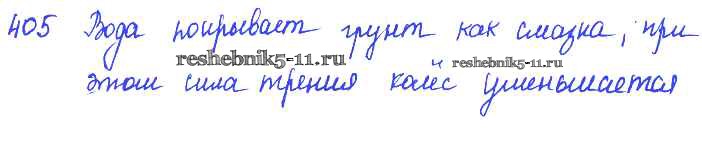 405 Вода покрывает грунт как смазка, при
reshebnik5-11.ru reshebnik5-11.ru
этом сила трения колёс уменьшается